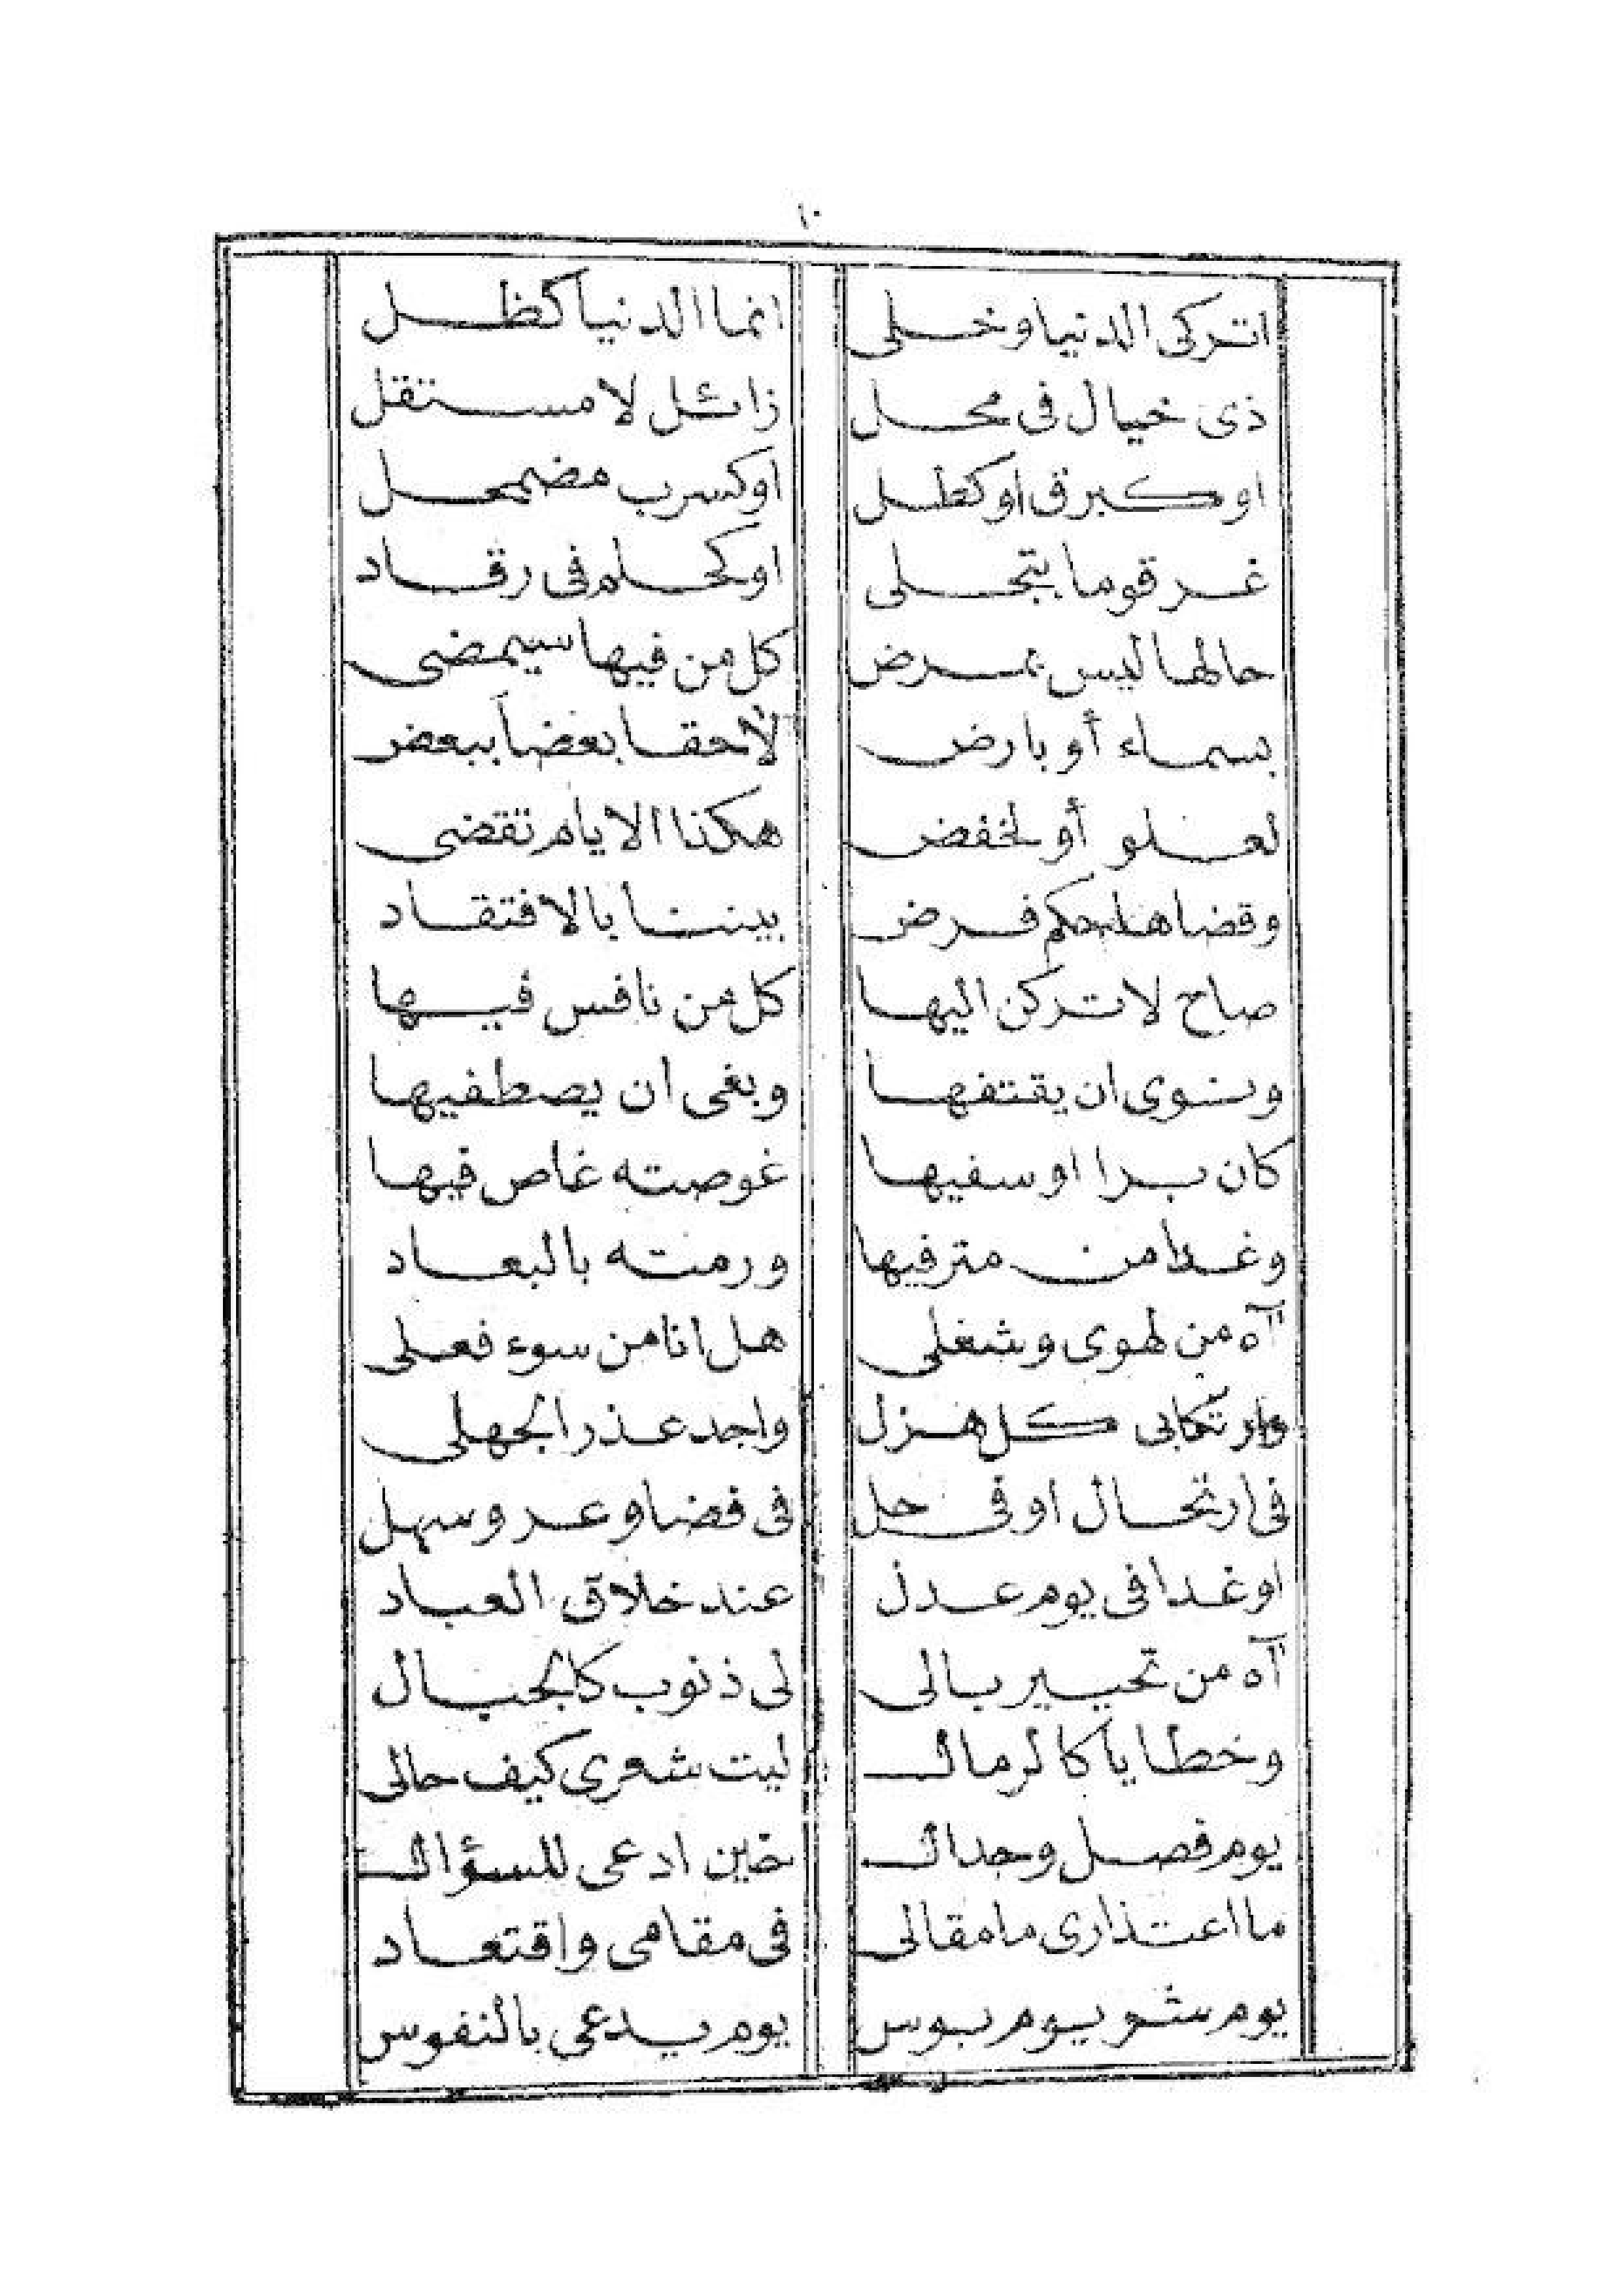 ١٠
اتركى الدنيا وخلى انما الدنيا كظل
ذى خيال فى محل زائل لا مستقل
او كبرق او كطل اوكسرب مضمحل
غر قوما بتجلى اوكحلم فى رقاد
حالها ليس بمرض كل من فيها سيمضى
بسماء أو بارض لاحقا بعضاً ببعض
لعلو أو لخفض هكذا الايام تقضى
وقضاها حكم فرض بيننا بالافتقاد
صاح لا تركن اليها كل من نافس فيها
ونوى ان يقتفها وبغى ان يصطفيها
كان برا او سفيها غوصته غاص فيها
وغدا من مترفيها ورمته بالبعاد
آه من لهوى وشغلى هل انا من سوء فعلى
وارتكابى كل هزل واجد عذر الجهلى
فى ارتحال او فى حل فى فضا وعر وسهل
او غدا فى يوم عدل عند خلاق العباد
آه من تحيير بالى لى ذنوب كالجبال
وخطايا كالرمال ليت شعرى كيف حالى
يوم فصل وجدال حين ادعى للسؤال
ما اعتذارى ما مقالى فى مقامى واقتعاد
يوم يوم بوس يوم يدعى بالنفوس